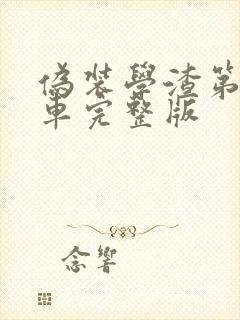 偽裝學渣第
車完整版
念響